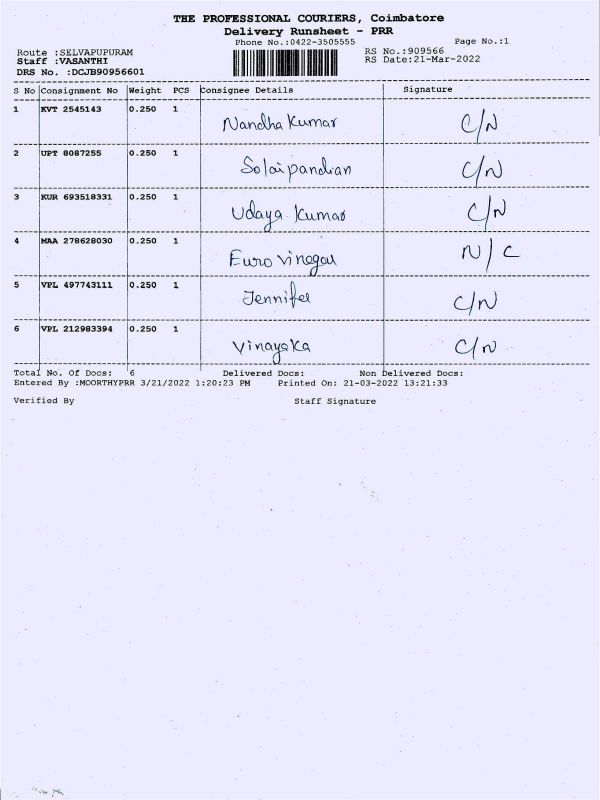 THE PROFESSIONAL COURIERS, Coimbatore
Delivery Runsheet - PRR
Phone No.:0422-3505555 Page No.:1
Route :SELVAPUPURAM RS No.:909566
Staff :VASANTHI RS Date:21-Mar-2022
DRS No. :DCJB90956601
S No Consignment No Weight PCS Consignee Details Signature
1 KVT 2545143 0.250 1 Nandha Kumar C/N
2 UPT 8087255 0.250 1 Solaipandian C/N
3 KUR 693518331 0.250 1 Udaya Kumar C/N
4 MAA 278628030 0.250 1 Euro Vinegar N/C
5 VPL 497743111 0.250 1 Jennifer C/N
6 VPL 212983394 0.250 1 Vinayaka C/N
Total No. Of Docs: 6 Delivered Docs: Non Delivered Docs:
Entered By :MOORTHYPRR 3/21/2022 1:20:23 PM Printed On: 21-03-2022 13:21:33
Verified By Staff Signature